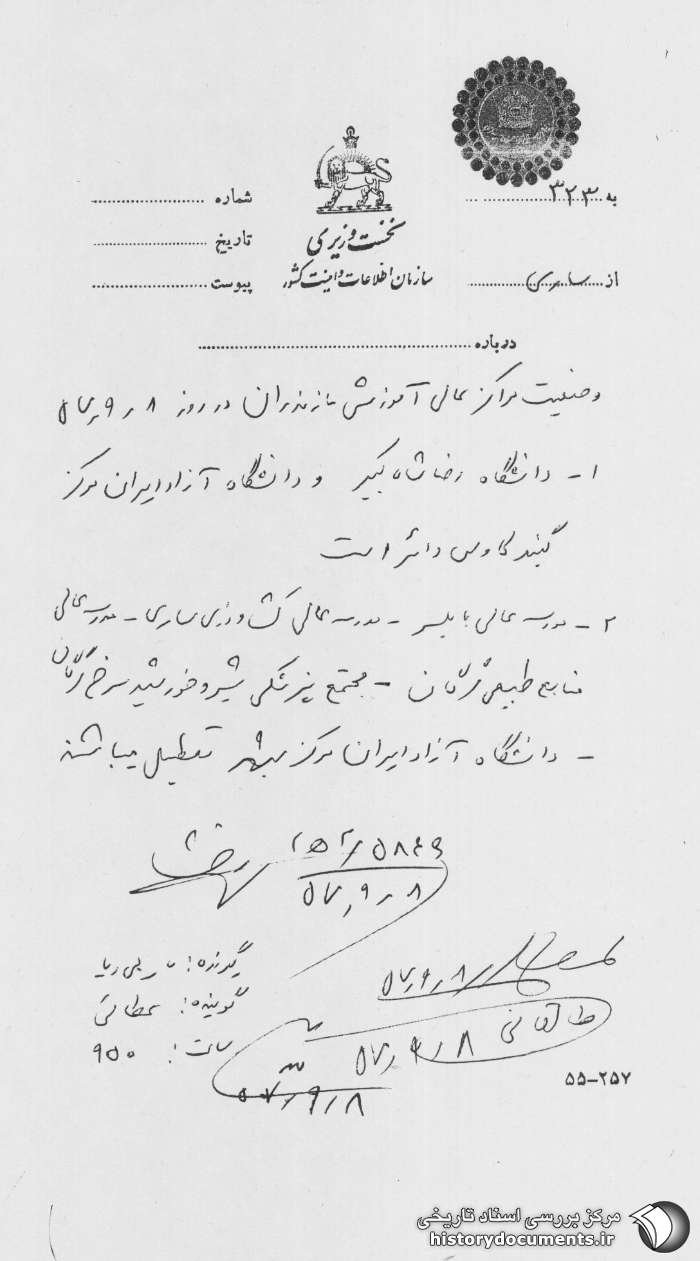 به ۳۲۳ شماره
نخست وزیری
تاریخ
از ساری سازمان اطلاعات و امنیت کشور پیوست
درباره
وضعیت مراکز عالی آموزشی مازندران در روز ۵۷٫۹٫۸
۱- دانشگاه رضا شاه کبیر و دانشگاه آزاد ایران مرکز
گنبد کاوس دائر است
۲- مدرسه عالی بابلسر - مدرسه عالی کشاورزی ساری - مدرسه عالی
منابع طبیعی گرگان - مجتمع پزشکی شیر و خورشید سرخ گرگان
- دانشگاه آزاد ایران مرکز بهشهر تعطیل میباشند
۵۷٫۹٫۸
گیرنده:
۵۷٫۹٫۸
گوینده: عطائی
طالقانی ۵۷٫۹٫۸
ساعت: ۹۵۰
۵۷٫۹٫۸
۵۵-۲۵۷
مرکز بررسی اسناد تاریخی
historydocuments.ir